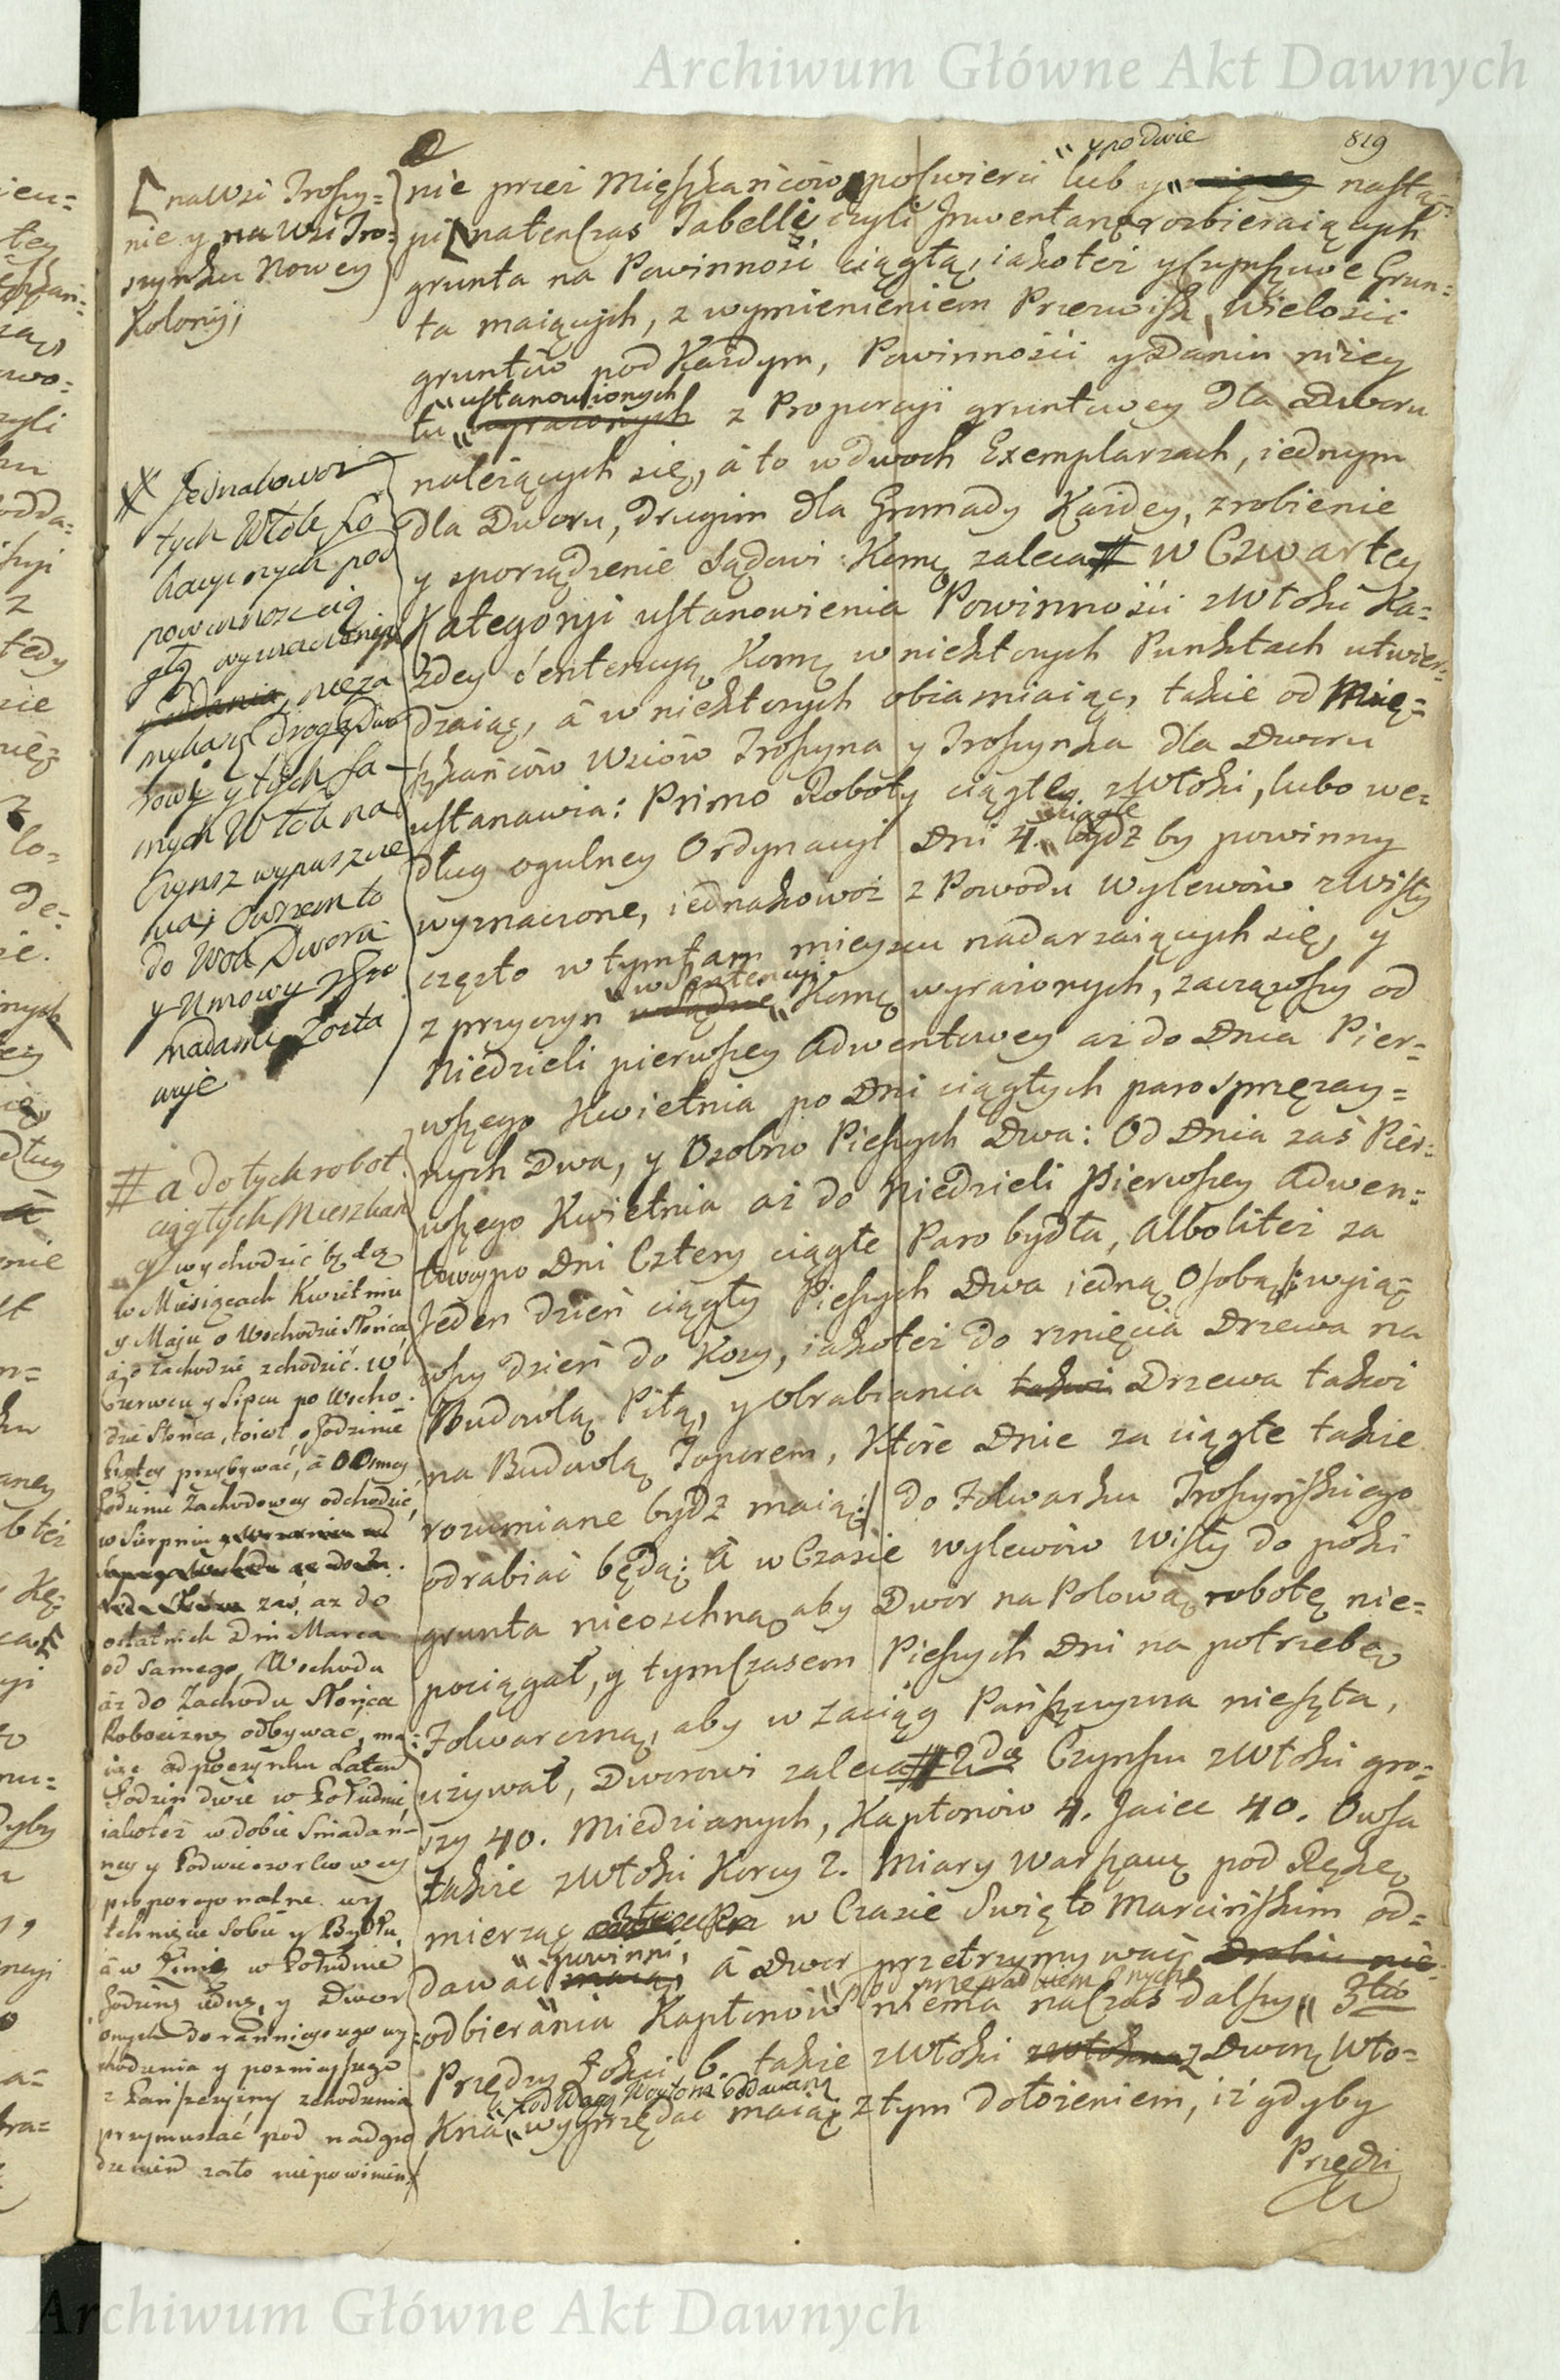 Archiwum Główne Akt Dawnych
819
y po dwie
nie przez Mięszkańcow, po ćwierci lub y nastą-
pi [natenczas Tabelli czyli Jnwentarzo rozbieraiących
grunta na Powinność ciągłą, iakoteż y czynszowe Grun-
ta maiących, z wymienieniem Przezwisk, Wielości
gruntów pod Każdym, Powinności y Danin niżey
ustanowionych
tu wyrazonych z Proporcyi gruntowey dla Dworu
należących się, à to w dwoch Exemplarzach, iednym
dla Dworu, drugim dla Gromady Każdey, zrobienie
y sporządzenie Sądowi Komę zaleca # W Czwartey
Kategoryi ustanowienia Powinności z Włoki Ka-
żdey Sentencyą Komę w niektorych Punktach utwier-
dzaiąc, à w niektorych obiasniaiąc, takie od Mię-
szkańców Wsiów Troszyna y Troszynka dla Dworu
ustanawia: Primo Roboty ciągłey z Włoki, lubo we-
ciągłe
dług ogulney Ordynacyi Dni 4. bydź by powinny
wyznaczone, iednakowoż z Powodu wylewów z Wisły
często w tymtam mieyscu nadarzaiących się, y
w Sentencyi
z przyczyn Komę wyrażonych, zacząwszy od
Niedzieli pierwszey Adwentowey aż do Dnia Pier-
wszego Kwietnia po Dni ciągłych parosprzężay-
nych Dwa, y Osobno Pieszych Dwa: Od Dnia zaś Pier-
wszego Kwietnia aż do Niedzieli Pierwszey Adwen-
towey po Dni Cztery ciągłe Paro bydła, Alboliteż za
Jeden dzień ciągły Pieszych Dwa iedną Osobą /: wyią-
wszy dzień do Kosy, iakoteż do rznięcia Drzewa na
Budowlą Piłą, y Obrabiania takoż Drzewa takoż
na Budowlą Toporem, Które Dnie za ciągłe takie
rozumiane bydź maią :/ do Folwarku Troszyńskiego
odrabiać będą; à w Czasie wylewów Wisły do poki
grunta nieoschną, aby Dwor na Polową robotę nie-
pociągał, y tymczasem Pieszych Dni na potrzebę
Folwarczną, aby w zaciąg Pańszczyzna nieszła,
używał, Dworowi zaleca # 2do Czynszu z Włoki gro-
szy 40. Miedzianych, Kapłonów 4. Jaiec 40. Owsa
takie z Włoki Korcy 2. Miary Warszaws pod Rękę
mierząc w Czasie Święto Marcińskim od-
powinni,
dawać maią, à Dwor przetrzymywać
odbierania Kapłonów niema na czas dalszy 3tio
Przędzy Łokci 6. takie z Włoki z Dworz Wło-
Pod Wagą oddawaną
Kna wyprzędać maią z tym dołożeniem, iż gdyby
Przędzi
[na Wsi Troszy-
nie y na Wsi Tro-
szynku Nowey
Kolonij,
# Jednakowoż
tych Włók
pod
powinnosc cią
głą wyznaczonych
nieza
myka drogę Dwo-
rowi y tych sa-
mych Włok na
Czynsz wypuszcze
nia, Owszem to
do Woli Dworu
y Umowy z Gro
madami Zosta
wuje
# a do tych robot
ciągłych Mieszkań
cy wychodzić będą
w Miesiącach Kwietniu
y Maju o Wschodzie Słońca
à o Zachodzie zchodzić. W
Czerwcu y Lipcu po Wscho
dzie Słońca, to iest o Godzinie
Piątey przybywać, à o Osmey
Godzinie Zachodowey odchodzić,
w Sierpniu
zaś, aż do
ostatnich Dni Marca
od samego Wschodu
aż do Zachodu Słońca
Robociznę odbywać, ma-
iąc odpoczynku Latem
Godzin dwie w Południe,
iakoteż w dobie Sniadań-
ney y Podwieczorkowey
proporcyonalne wy
tchnienie Sobie y Bydłu,
à w Zimie w Południe
Godzinę iedną, y Dwor
onych do rannieyszego wy
chodzenia y poznieyszego
z Pańszczyzny zchodzenia
przymuszać pod nadgro
dzeniem zato niepowinien
Archiwum Główne Akt Dawnych